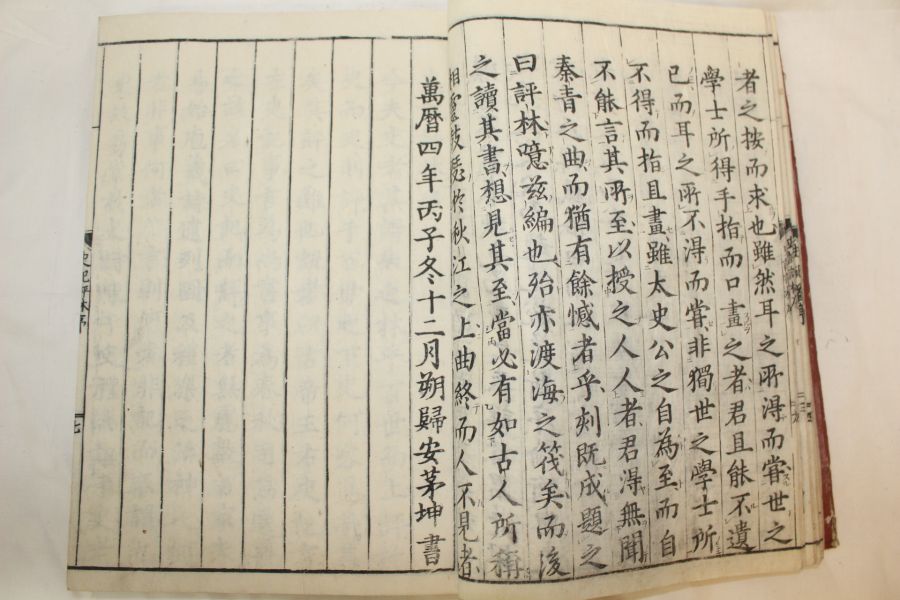 者之按而求也雖然耳之所得而嘗世之
學士所得手指而口畫之者君且能不遺
已而耳之所不得而嘗非獨世之學士所
不得而指且畫雖太史公之自為至而自
不能言其所至以授之人人者君得無聞
秦青之曲而猶有餘憾者乎刻既成題之
曰評林噫兹編也殆亦渡海之筏矣而後
之讀其書想見其至當必有如古人所稱
湘靈鼓瑟於秋江之上曲終而人不見者
萬曆四年丙子冬十二月朔歸安茅坤書
史記評林序
七